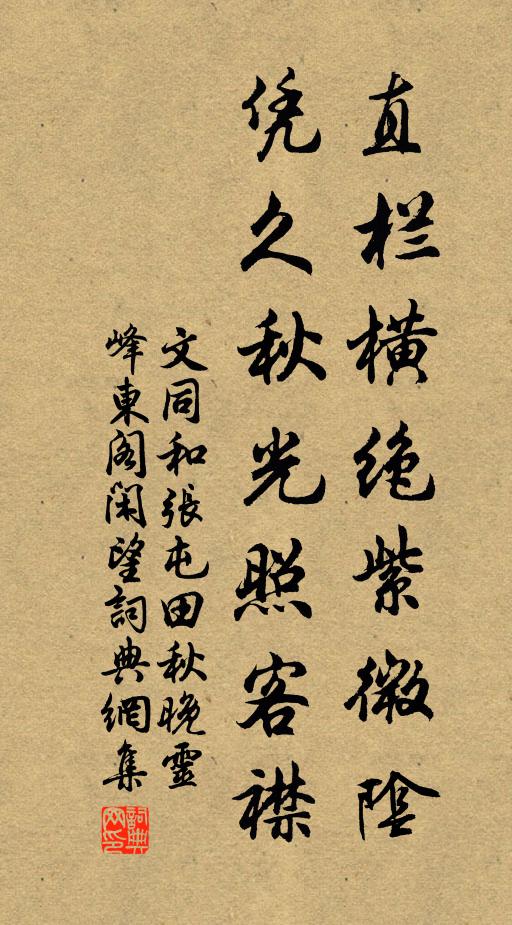 直栏横绝紫微陰
凭久秋光照客襟
文同和張屯田秋晚靈
峰東阁闲望詞典網集
詞典网印